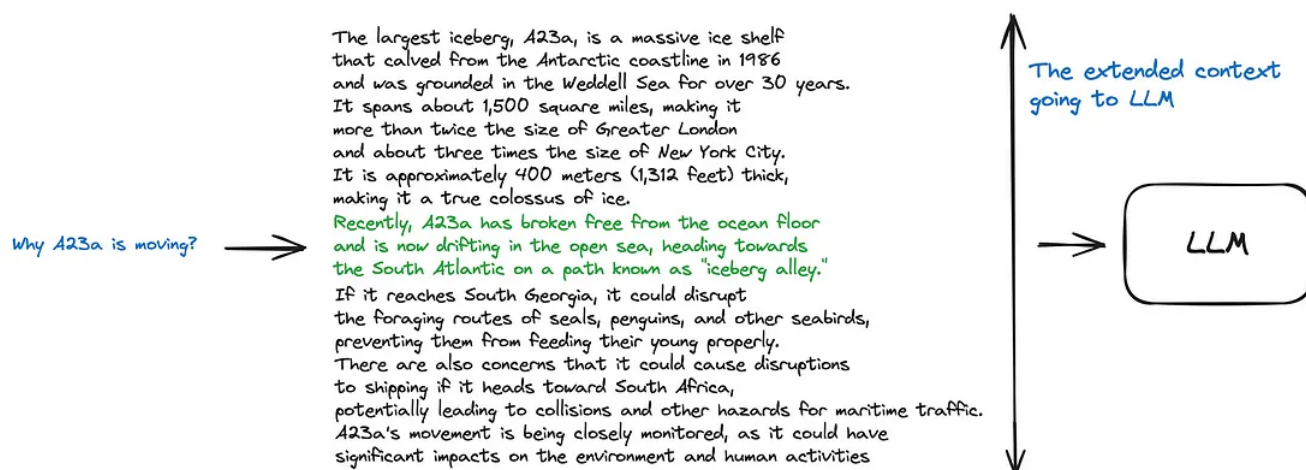 The largest iceberg, A23a, is a massive ice shelf
that calved from the Antarctic coastline in 1986
and was grounded in the Weddell Sea for over 30 years.
It spans about 1,500 square miles, making it
more than twice the size of Greater London
and about three times the size of New York City.
It is approximately 400 meters (1,312 feet) thick,
making it a true colossus of ice.
Recently, A23a has broken free from the ocean floor
and is now drifting in the open sea, heading towards
the South Atlantic on a path known as "iceberg alley."
If it reaches South Georgia, it could disrupt
the foraging routes of seals, penguins, and other seabirds,
preventing them from feeding their young properly.
There are also concerns that it could cause disruptions
to shipping if it heads toward South Africa,
potentially leading to collisions and other hazards for maritime traffic.
A23a's movement is being closely monitored, as it could have
significant impacts on the environment and human activities
Why A23a is moving?
The extended context
going to LLM
LLM